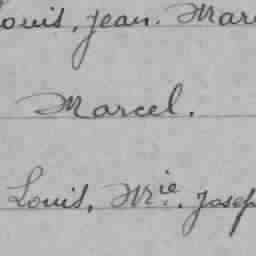 Louis, Jean. Mar
Marcel.
Louis, Mrie. Josep